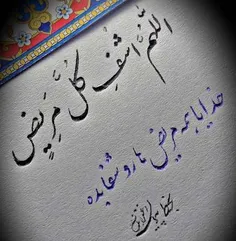 اللهم اشفِ كلَّ مَرِيض
خدایا همه مریض ها رو شفا بده